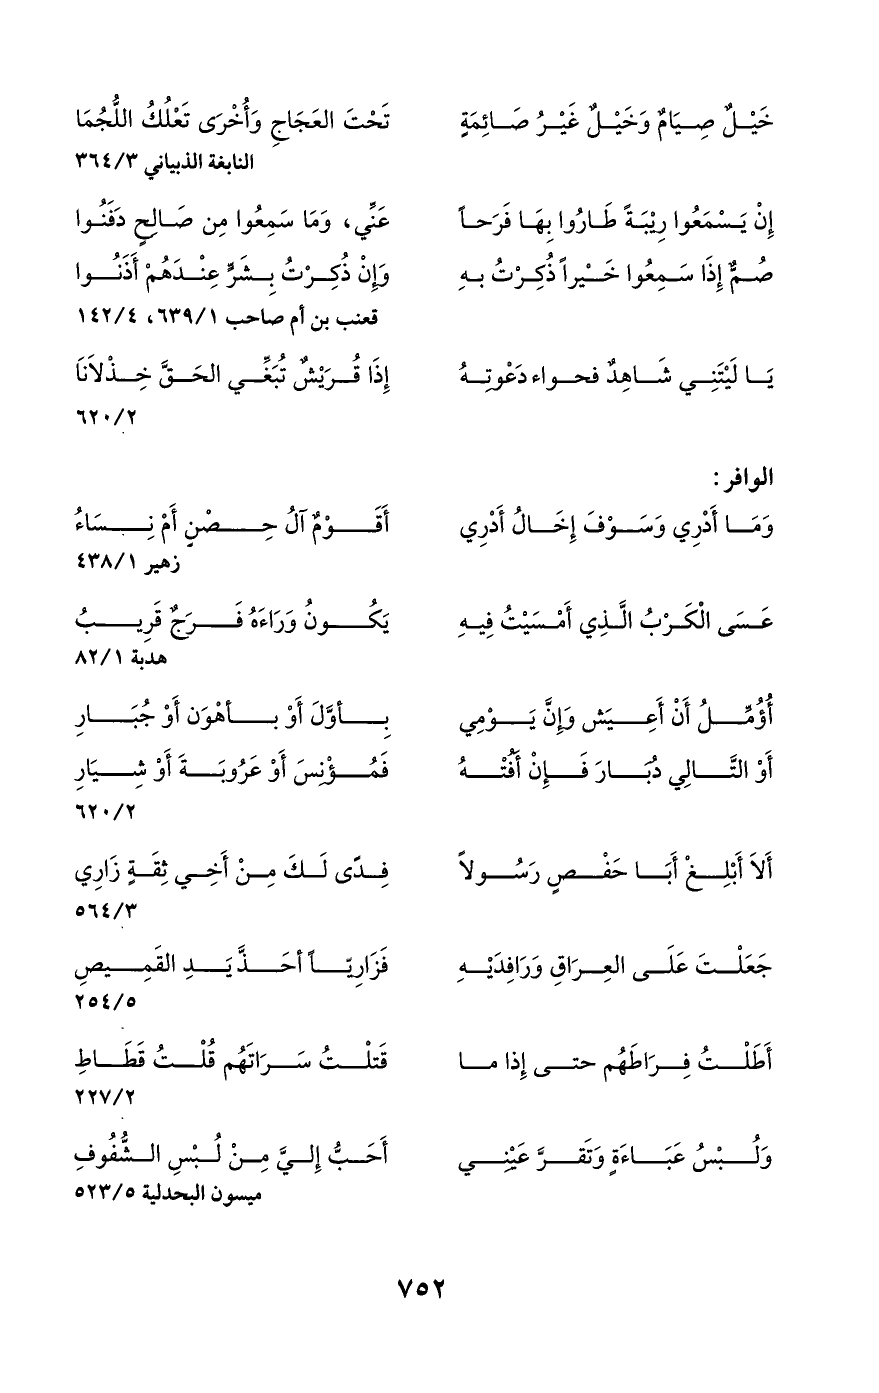 خَيْلٌ صِيَامٌ وَخَيْلٌ غَيْرُ صَائِمَةٍ تَحْتَ العَجَاجِ وَأُخْرَى تَعْلُكُ اللُّجُمَا
النابغة الذبياني ٣/٣٦٤
إِنْ يَسْمَعُوا رِيْبَةً طَارُوا بِهَا فَرَحاً عَنِّي، وَمَا سَمِعُوا مِن صَالِحٍ دَفَنُوا
صُمٌّ إِذَا سَمِعُوا خَيْراً ذُكِرْتُ بهِ وَإِنْ ذُكِرْتُ بِشَرٍّ عِنْدَهُمْ أَذَنُوا
قعنب بن أم صاحب ١/٦٣٩، ٤/١٤٢
يَا لَيْتَنِي شَاهِدٌ فحواء دَعْوتِهُ إِذَا قُرَيْشٌ تُبَغِّي الحَقَّ خِذْلاَنَا
٢/٦٢٠
الوافر:
وَمَا أَدْرِي وَسَوْفَ إِخَالُ أَدْرِي أَقَوْمٌ آلُ حِصْنٍ أَمْ نِسَاءُ
زهير ١/٤٣٨
عَسَى الْكَرْبُ الَّذِي أَمْسَيْتُ فِيهِ يَكُونُ وَرَاءَهُ فَرَجٌ قَرِيبُ
هدبة ١/٨٢
أُؤُمِّلُ أَنْ أَعِيَش وَإِنَّ يَوْمِي بِأوَّلَ أَوْ بأهْوَن أَوْ جُبَارِ
أَوْ التَّالِي دُبَارَ فَإِنْ أَفُتْهُ فَمُؤْنِسَ أَوْ عَرُوبَةَ أَوْ شِيَارِ
٢/٦٢٠
أَلاَ أَبْلِغْ أَبَا حَفْصٍ رَسُولاً فِدًى لَكَ مِنْ أَخِي ثِقَةٍ زَارِي
٣/٥٦٤
جَعَلْتَ عَلَى العِرَاقِ وَرَافِدَيْهِ فَزَارِيّاً أحَذَّ يَدِ القَمِيصِ
٥/٢٥٤
أَطَلْتُ فِرَاطَهُم حتى إِذا ما قَتلْتُ سَرَاتَهُم قُلْتُ قَطَاطِ
٢/٢٢٧
وَلُبْسُ عَبَاءَةٍ وَتَقرَّ عَيْنِي أَحَبُّ إِليَّ مِنْ لُبْسِ الشُّفُوفِ
ميسون البحدلية ٥/٥٢٣
٧٥٢